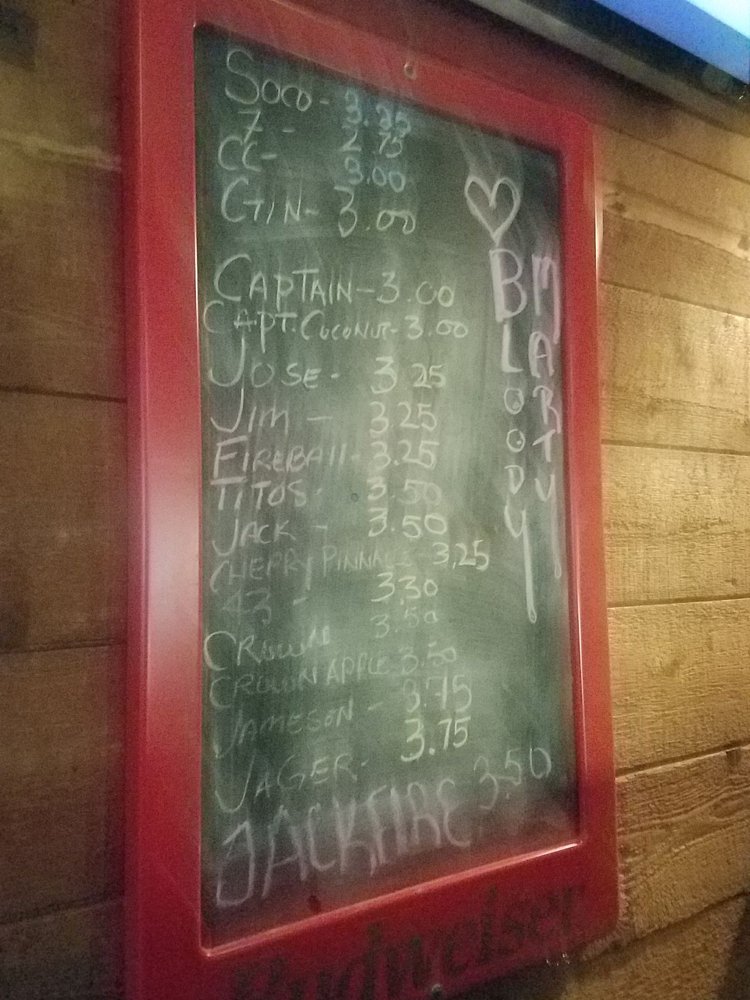 SoCo - 3.25
7 - 2.75
CC- 3.00
GIN- 3.00
CAPTAIN-3.00
CAPT. COCONUT-3.00
JOSE- 3.25
JIM - 3.25
FIREBAll- 3.25
TITOS- 3.50
JACK - 3.50
CHERRY PINNACLE 3.25
43 - 3.30
CROWN 3.50
CROWN APPLE 3.50
JAMESON - 3.75
JAGER- 3.75
JACKFIRE 3.50
BLOODY
MARY
Budweiser